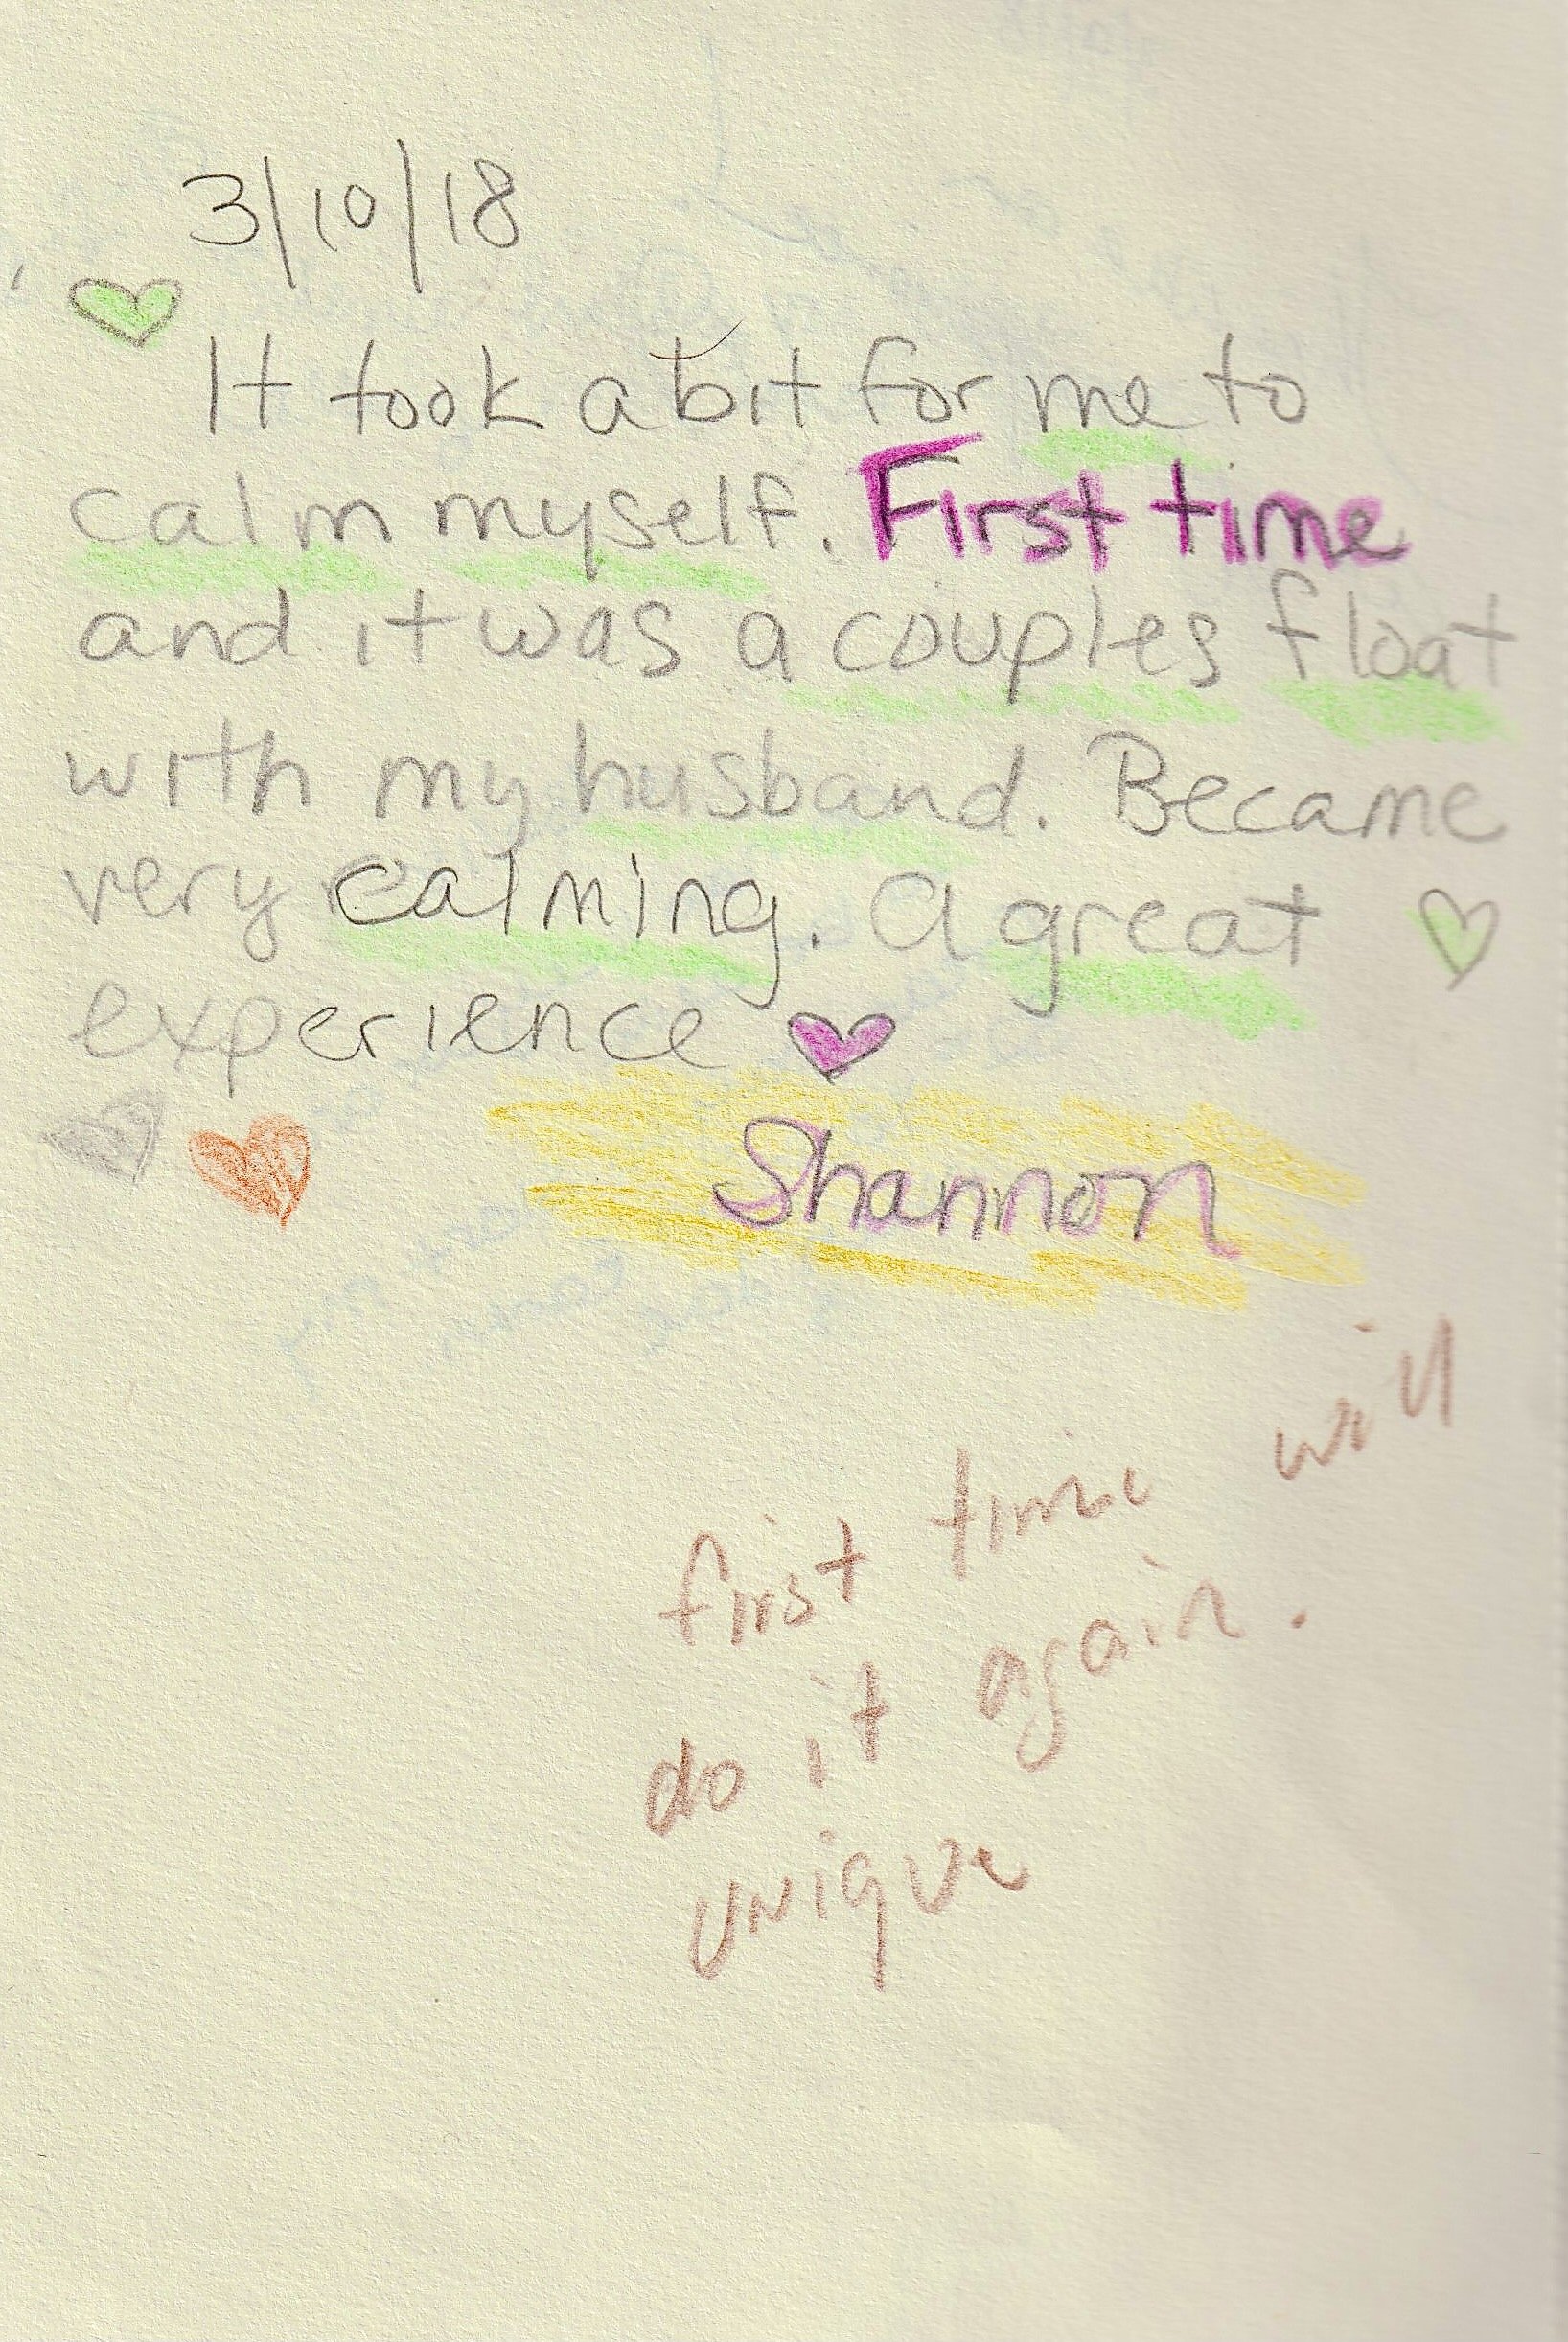 3/10/18
It took a bit for me to
calm myself. First time
and it was a couples float
with my husband. Became
very calming. A great
experience
Shannon
first time will
do it again.
unique